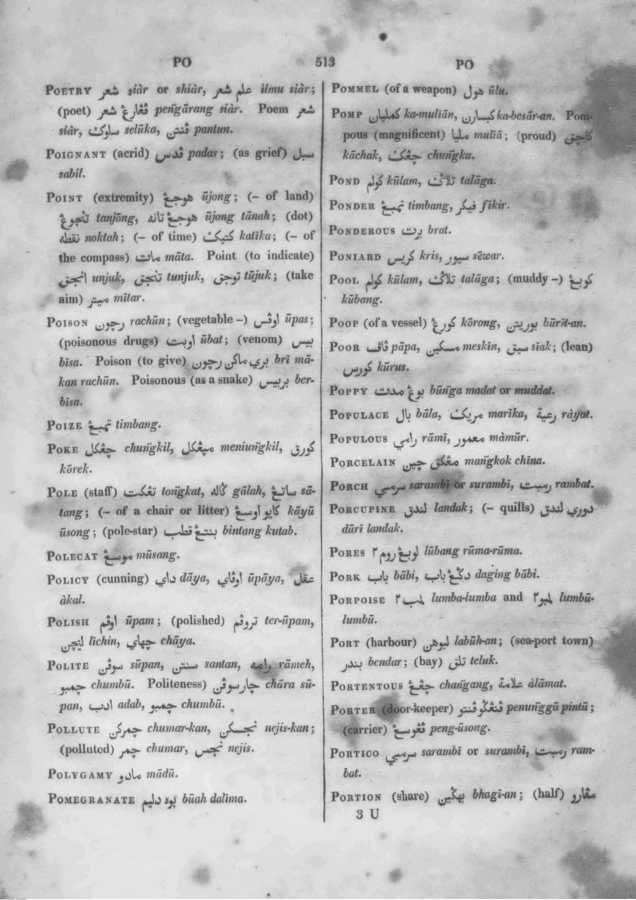 PO
513
PO
POETRY شعر siàr or shiàr, علم شعر ilmu siàr;
(poet) شعر pen͂gārang siàr. Poem شعر
siàr, سلوكت selūka, فنتن pantun.
POIGNANT (acrid) فدس padas; (as grief) سبل
sabil.
POINT (extremity) هوجڠ ūjong; (– of land)
تنجوڠ tanjōng, هوجڠ تانه ūjong tānah; (dot)
نقطه noktah; (– of time) كتيكت katīka; (– of
the compass) مات māta. Point (to indicate)
انجق unjuk, تنجق tunjuk, توجق tūjuk; (take
aim) ميتر mitar.
POISON رچون rachūn; (vegetable –) اوفس ūpas;
(poisonous drugs) اوبت ūbat; (venom) بيس
bīsa. Poison (to give) بري ماكن رچون brī mā-
kan rachūn. Poisonous (as a snake) بربيس ber-
bīsa.
POIZE تمبڠ timbang.
POKE چڠكل chun͂gkil, ميڠكل meniun͂gkil, كورق
kōrek.
POLE (staff) تڠكت ton͂gkat, كاله gālah, ساتڠ sā-
tang; (– of a chair or litter) كايو اوسڠ kāyū
ūsong; (pole-star) بنتڠ قطب bintang kutab.
POLECAT موسڠ mūsang.
POLICY (cunning) داي dāya, اوفاي ūpāya, عقل
àkal.
POLISH اوفم ūpam; (polished) تروفم ter-ūpam,
ليچن līchin, چهاي chāya.
POLITE سوفن sūpan, سنتن santan, رامه rāmeh,
چمبو chumbū. Politeness) چارسوفن chāra sū-
pan, ادب adab, چمبو chumbū.
POLLUTE چمركن chumar-kan, نجسكن nejis-kan;
(polluted) چمر chumar, نجس nejis.
POLYGAMY مادو mādū.
POMEGRANATE بوه دليم būah dalīma.
POMMEL (of a weapon) هول ūlu.
POMP كمليان ka-muliān, كبسارن ka-besār-an. Pom-
pous (magnificent) مليا muliā; (proud) كاچق
kāchak, چڠكت chun͂gka.
POND كولم kūlam, تلاكت talāga.
PONDER تمبڠ timbang, فيكر fikir.
PONDEROUS برت brat.
PONIARD كريس kris, سيور sēwar.
POOL كولم kūlam, تلاكت talāga; (muddy –) كوبڠ
kūbang.
POOP (of a vessel) كورڠ kōrong, بوريتن būrīt-an.
POOR فاف pāpa, مسكين meskin, سيق siak; (lean)
كورس kūrus.
POPPY بوڠ مدت būn͂ga madat or muddat.
POPULACE بال bāla, مريكت marīka, رعية ràyat.
POPULOUS رامي rāmī, معمور màmūr.
PORCELAIN مڠكق چين man͂gkok china.
PORCH سرمبي sarambi or surambi, رمبت rambat.
PORCUPINE لندق landak; (– quills) دوري لندق
dūri landak.
PORES لوبڠ روم٢ lūbang rūma-rūma.
PORK بابي bābi, دكڠ بابي daging bābi.
PORPOISE لمب٢ lumba-lumba and لمبو٢ lumbū-
lumbū.
PORT (harbour) لبوهن labūh-an; (sea-port town)
بندر bendar; (bay) تلق teluk.
PORTENTOUS چڠڠ chan͂gang, علامة àlāmat.
PORTER (door-keeper) فنڠكو فنتو penun͂ggū pintū;
(carrier) فڠوسڠ peng-ūsong.
PORTICO سرمبي sarambi or surambi, رمبت ram-
bat.
PORTION (share) بهكين bhagī-an; (half)
3 U